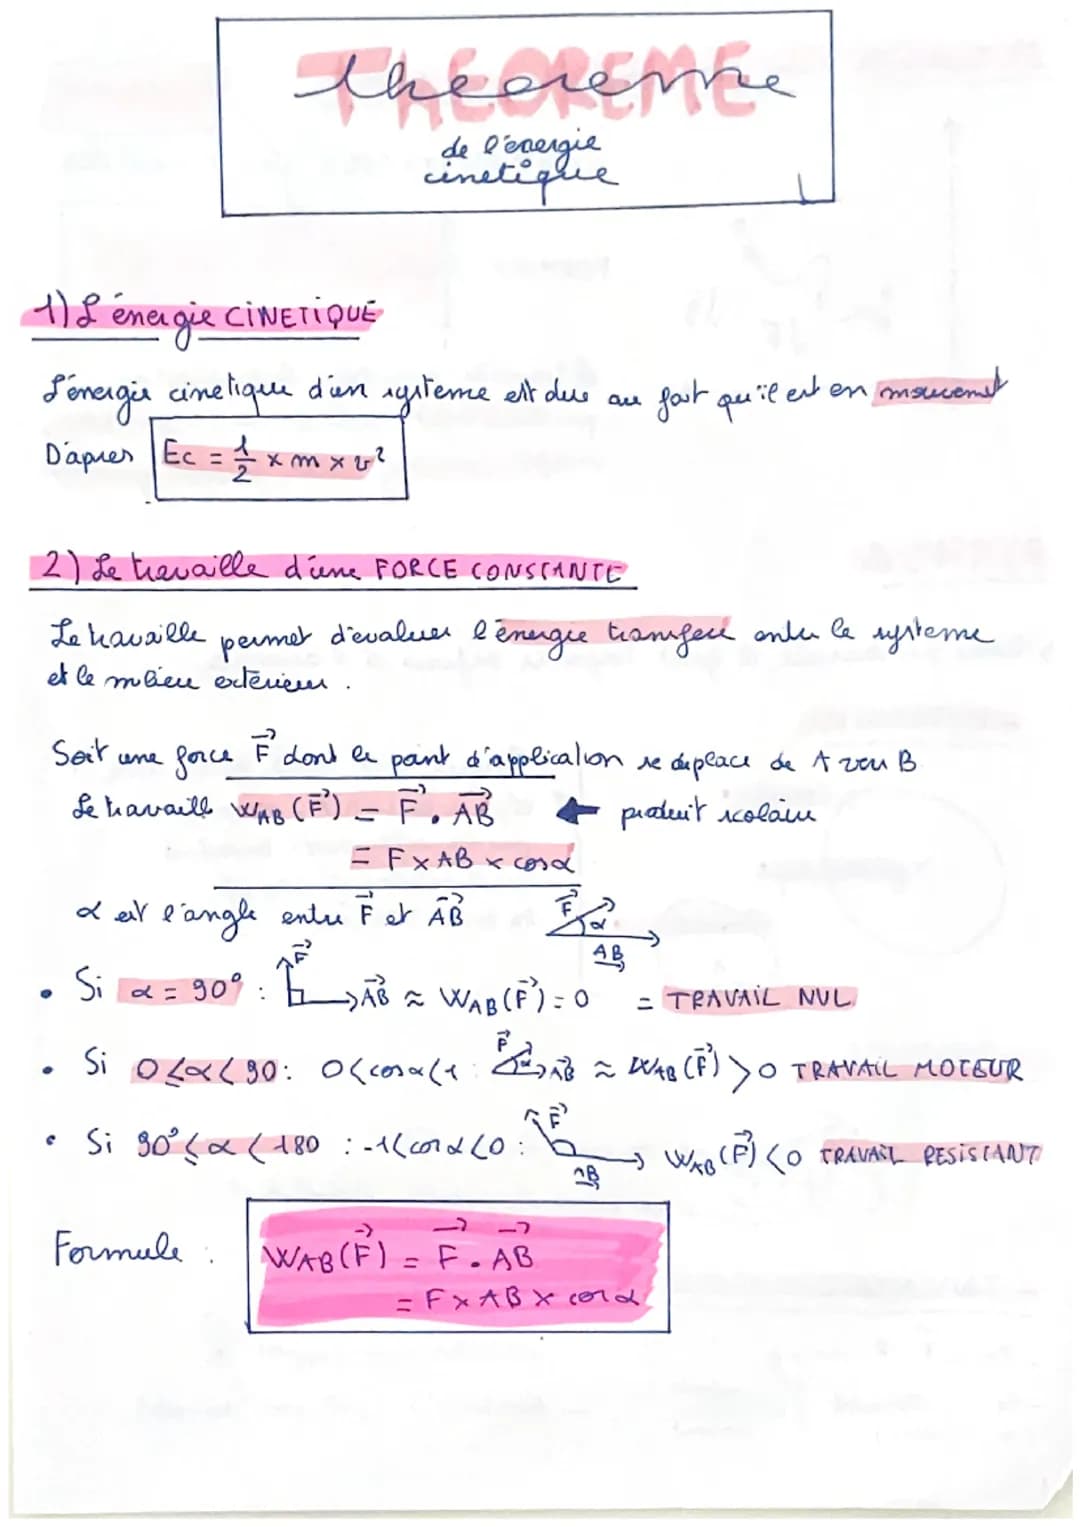 THEOREME
theoreme
de l'énergie
cinetique
1) L'énergie CINETIQUE
L'énergie cinetique d'un systeme est due au fait qu'il est en mouvement
D'apres Ec = 1/2 × m × v²
2) Le travaille d'une FORCE CONSTANTE
Le travaille permet d'evaluer l'énergie transferé entre le systeme
et le milieu extérieur .
Soit une force F⃗ dont le point d'application se déplace de A vers B
Le travaille WAB (F⃗) = F⃗ . AB⃗ ← produit scolaire
= F × AB × cosα
α est l'angle entre F⃗ et AB⃗ F⃗ α AB⃗
• Si α = 90° : F⃗ AB⃗ ≈ WAB(F⃗) = 0 = TRAVAIL NUL
• Si 0 ≤ α < 90 : 0 < cosα < 1 : F⃗ α AB⃗ ≈ WAB (F⃗) > 0 TRAVAIL MOTEUR
• Si 90° ≤ α < 180 : -1 < cosα < 0 : F⃗ AB⃗ WAB (F⃗) < 0 TRAVAIL RESISTANT
Formule : WAB(F⃗) = F⃗ . AB⃗
= F × AB × cosα